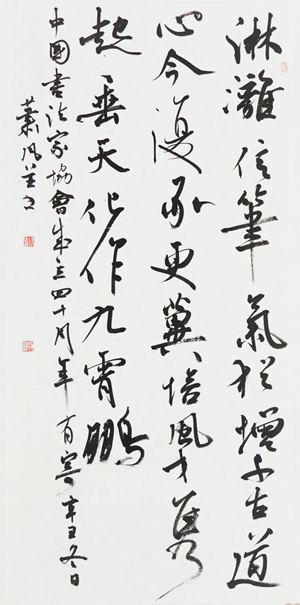 淋灕信筆氣猶增千古道
心今復承更冀培風才雋
起垂天化作九霄鵬
中國書法家協會成立四十周年有寄辛丑冬日
蕭風